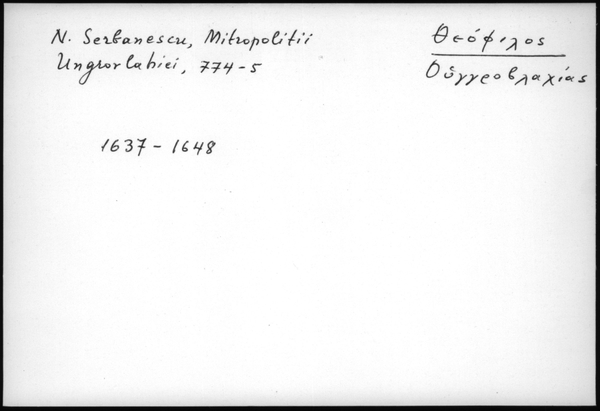 N. Serbanescu, Mitropolitii
Ungrovlahiei, 774-5
Θεόφιλος
Οὐγγροβλαχίας
1637 - 1648